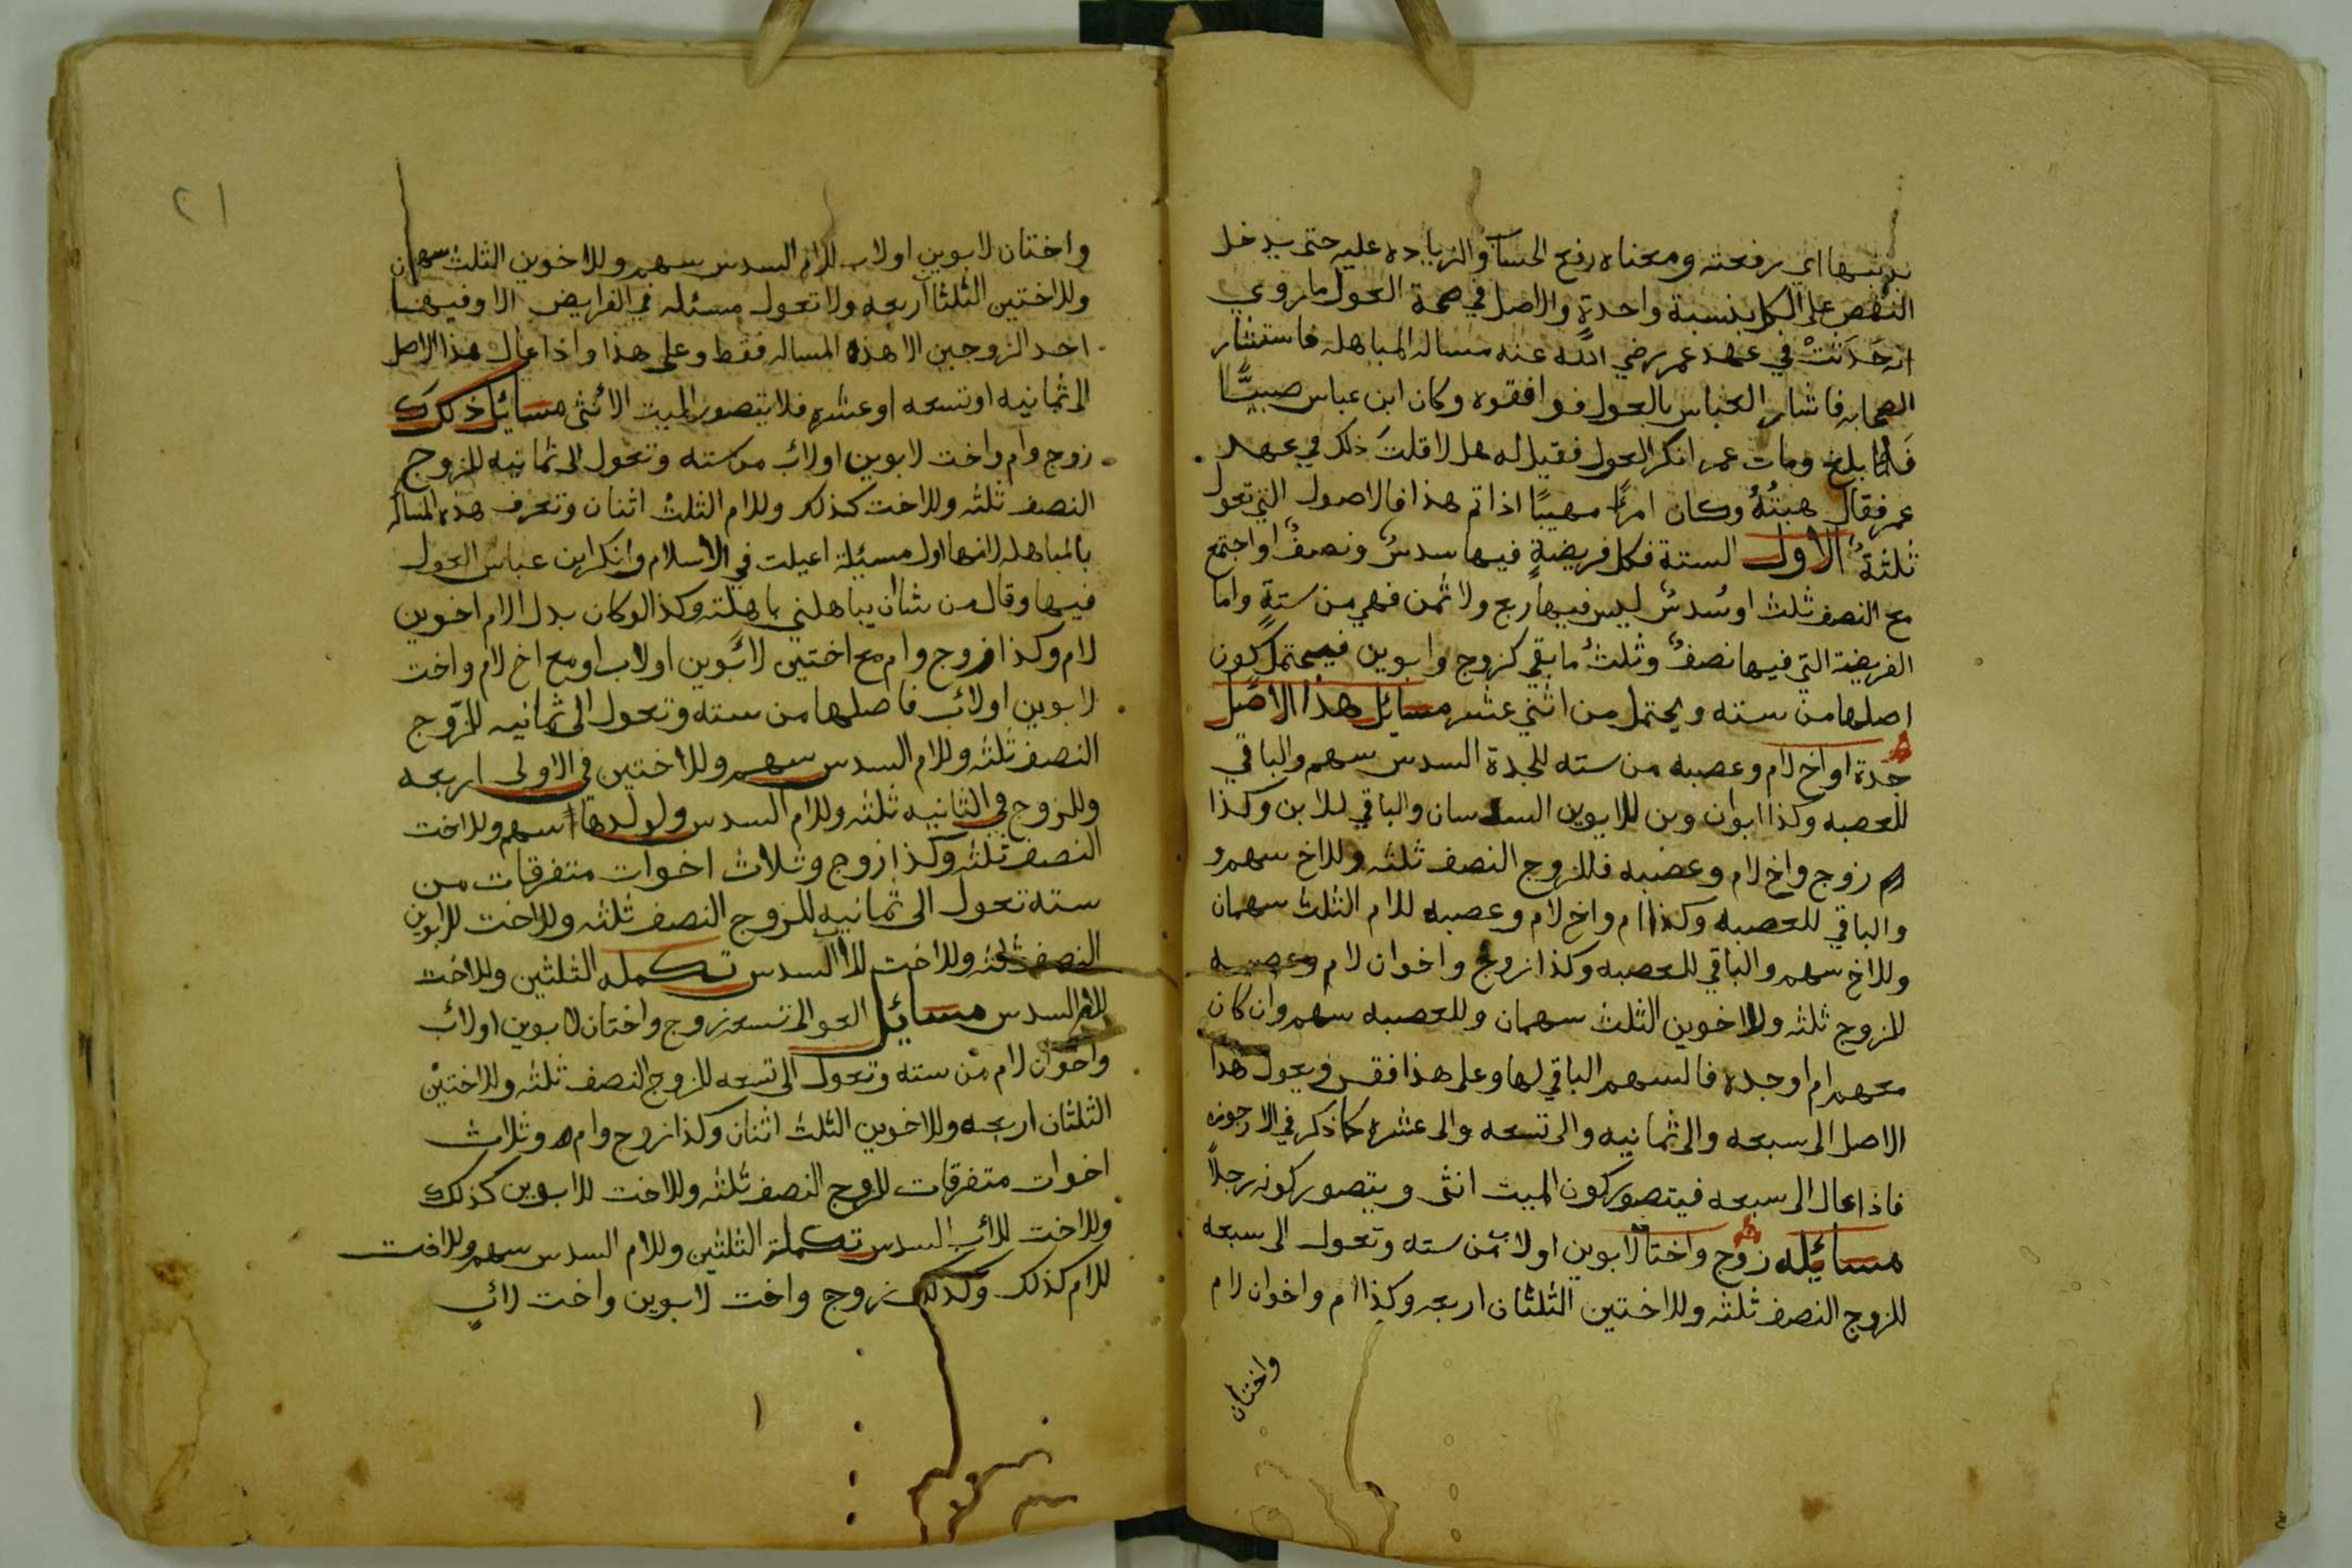 بذنبها اي رفعته ومعناه رفع الحساب والزيادة عليه حتى يدخل
النقص على الكل بنسبة واحدةٍ والاصل في صحة العول ما روي
انه حَدَثَتْ في عهد عمر رضي الله عنه مساله المباهله فاستشار
الصحابه فاشار العباس بالعول فوافقوه وكان ابن عباس صبيًّا
فلما بلغ ومات عمر انكر العول فقيل له هل لا قلتَ ذلك في عهد
عمر فقال هبتُهُ وكان امرًا مهيبًا اذا تم هذا فالاصول التي تعول
ثلثةٌ الاول الستة فكل فريضةٍ فيها سدسٌ ونصفٌ او اجتمع
مع النصف ثلث او سُدسٌ ليس فيها ربع ولا ثمن فهي من ستةٍ واما
الفريضة التي فيها نصفٌ وثلثُ ما بقي كزوج وابوين فيحتمل كون
اصلها من سته ويحتمل من اثني عشر مسائل هذا الاصل
جدة او اخ لام وعصبه من سته للجدة السدس سهم والباقي
للعصبه وكذا ابوان وبن للابوين السدسان والباقي للابن وكذا
زوج واخ لام وعصبه فللزوج النصف ثلثه وللاخ سهم و
والباقي للعصبه وكذا ام واخ لام وعصبه للام الثلث سهمان
وللاخ سهم والباقي للعصبه وكذا زوج واخوان لام وعصبه
للزوج ثلثه وللاخوين الثلث سهمان وللعصبه سهم وان كان
معهم ام او جده فالسهم الباقي لها وعلى هذا فقس ويعول هذا
الاصل الى سبعه والى ثمانيه والى تسعه والى عشره كما ذكر في الارجوزه
فاذا عال الى سبعه فيتصور كون الميت انثى ويتصور كونه رجلاً
مسائله زوج واختا لابوين او لاب من سته وتعول الى سبعه
للزوج النصف ثلثه وللاختين الثلثان اربعه وكذا ام واخوان لام
واختان
٢١
واختان لابوين او لاب للام السدس سهم وللاخوين الثلث سهمان
وللاختين الثلثا اربعه ولا تعول مسئله في الفرايض الا وفيها
احد الزوجين الا هذه المساله فقط وعلى هذا واذا عال هذا الاصل
الى ثمانيه او تسعه او عشره فلا يتصور الميت الا انثى مسائل ذلك
زوج وام واخت لابوين او لاب من سته وتعول الى ثمانيه للزوج
النصف ثلثه وللاخت كذلك وللام الثلث اثنان وتعرف هذه المساله
بالمباهله لانها اول مسئلة اعيلت في الاسلام وانكر ابن عباس العول
فيها وقال من شا ان يباهلني باهلته وكذا لو كان بدل الام اخوين
لام وكذا زوج وام مع اختين لابوين او لاب او مع اخ لام واخت
لابوين او لاب فاصلها من سته وتعول الى ثمانيه للزوج
النصف ثلثه وللام السدس سهم وللاختين في الاولى اربعه
وللزوج في الثانيه ثلثه وللام السدس ولولدها سهم وللاخت
النصف ثلثه وكذا زوج وثلاث اخوات متفرقات من
سته تعول الى ثمانيه للزوج النصف ثلثه وللاخت للابوين
النصف ثلثه وللاخت للاب السدس تكمله الثلثين وللاخت
للام السدس مسائل العو الى تسعه زوج واختان لابوين او لاب
واخوان لام من سته وتعول الى تسعه للزوج النصف ثلثه وللاختين
الثلثان اربعه وللاخوين الثلث اثنان وكذا زوج وام وثلاث
اخوات متفرقات للزوج النصف ثلثه وللاخت للابوين كذلك
وللاخت للاب السدس تكملة الثلثين وللام السدس سهم وللاخت
للام كذلك وكذلك زوج واخت لابوين واخت لاب